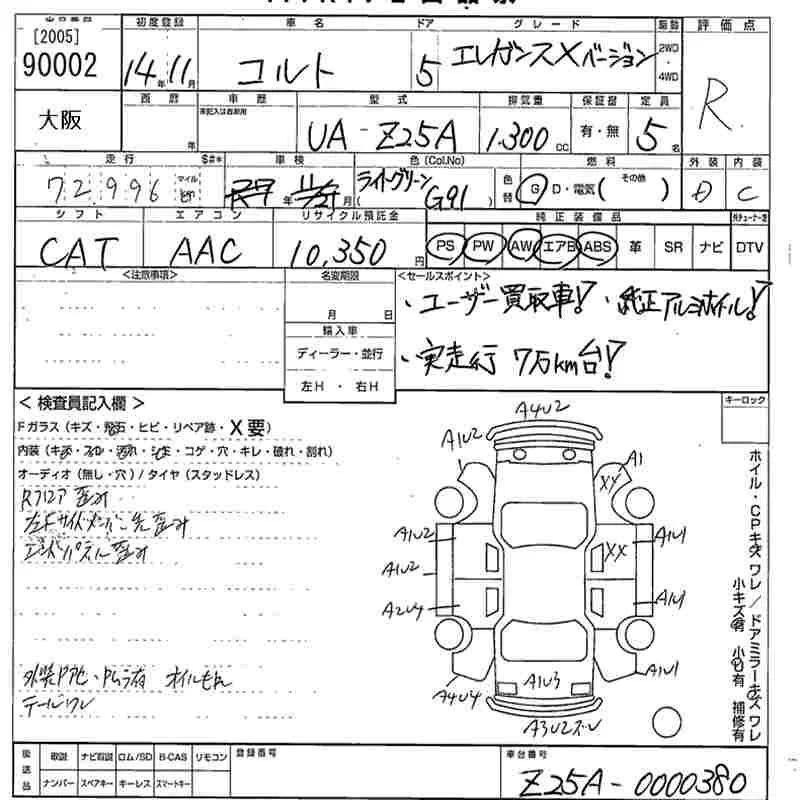 [2005]
90002
初度登録
14年11月
車名
コルト
ドア
5
グレード
エレガンスXバージョン
駆動
2WD
・
4WD
評価点
R
大阪
西暦
年
車歴
未記入は自家用
型式
UA-Z25A
排気量
1,300cc
保証書
有・無
定員
5名
走行
$#*
72,996
マイル
km
車検
年 月
色(Col.No)
ライトグリーン G91
色替
燃料
G D・電気( その他 )
外装
D
内装
C
シフト
CAT
エアコン
AAC
リサイクル預託金
10,350円
純正装備品
PS PW AW エアB ABS 革 SR ナビ
DTV
<注意事項>
名変期限
月 日
輸入車
ディーラー・並行
左H・右H
<セールスポイント>
・ユーザー買取車! ・純正アルミホイル!
・実走行 7万km台!
<検査員記入欄>
Fガラス(キズ・飛石・ヒビ・リペア跡・X要)
内装(キズ・スレ・汚れ・シミ・コゲ・穴・キレ・破れ・割れ)
オーディオ(無し・穴)/タイヤ(スタッドレス)
Rフロア 歪み
左Fサイドメンバー先歪み
エンドパネル歪み
テールワレ
キーロック
ホイル・CPキズワレ/ドアミラーキズワレ
小キズ有 小凹有 補修有
A4U2
A1U2
A1
XX
A1U2
A1U1
XX
A1U2
A2U4
A1U1
A4U4
A1U3
A1U1
A3U2ズレ
後送品
取説 ナビ取説 ロム/SD B-CAS リモコン
ナンバー スペアキー キーレス スマートキー
登録番号
車台番号
Z25A-0000380